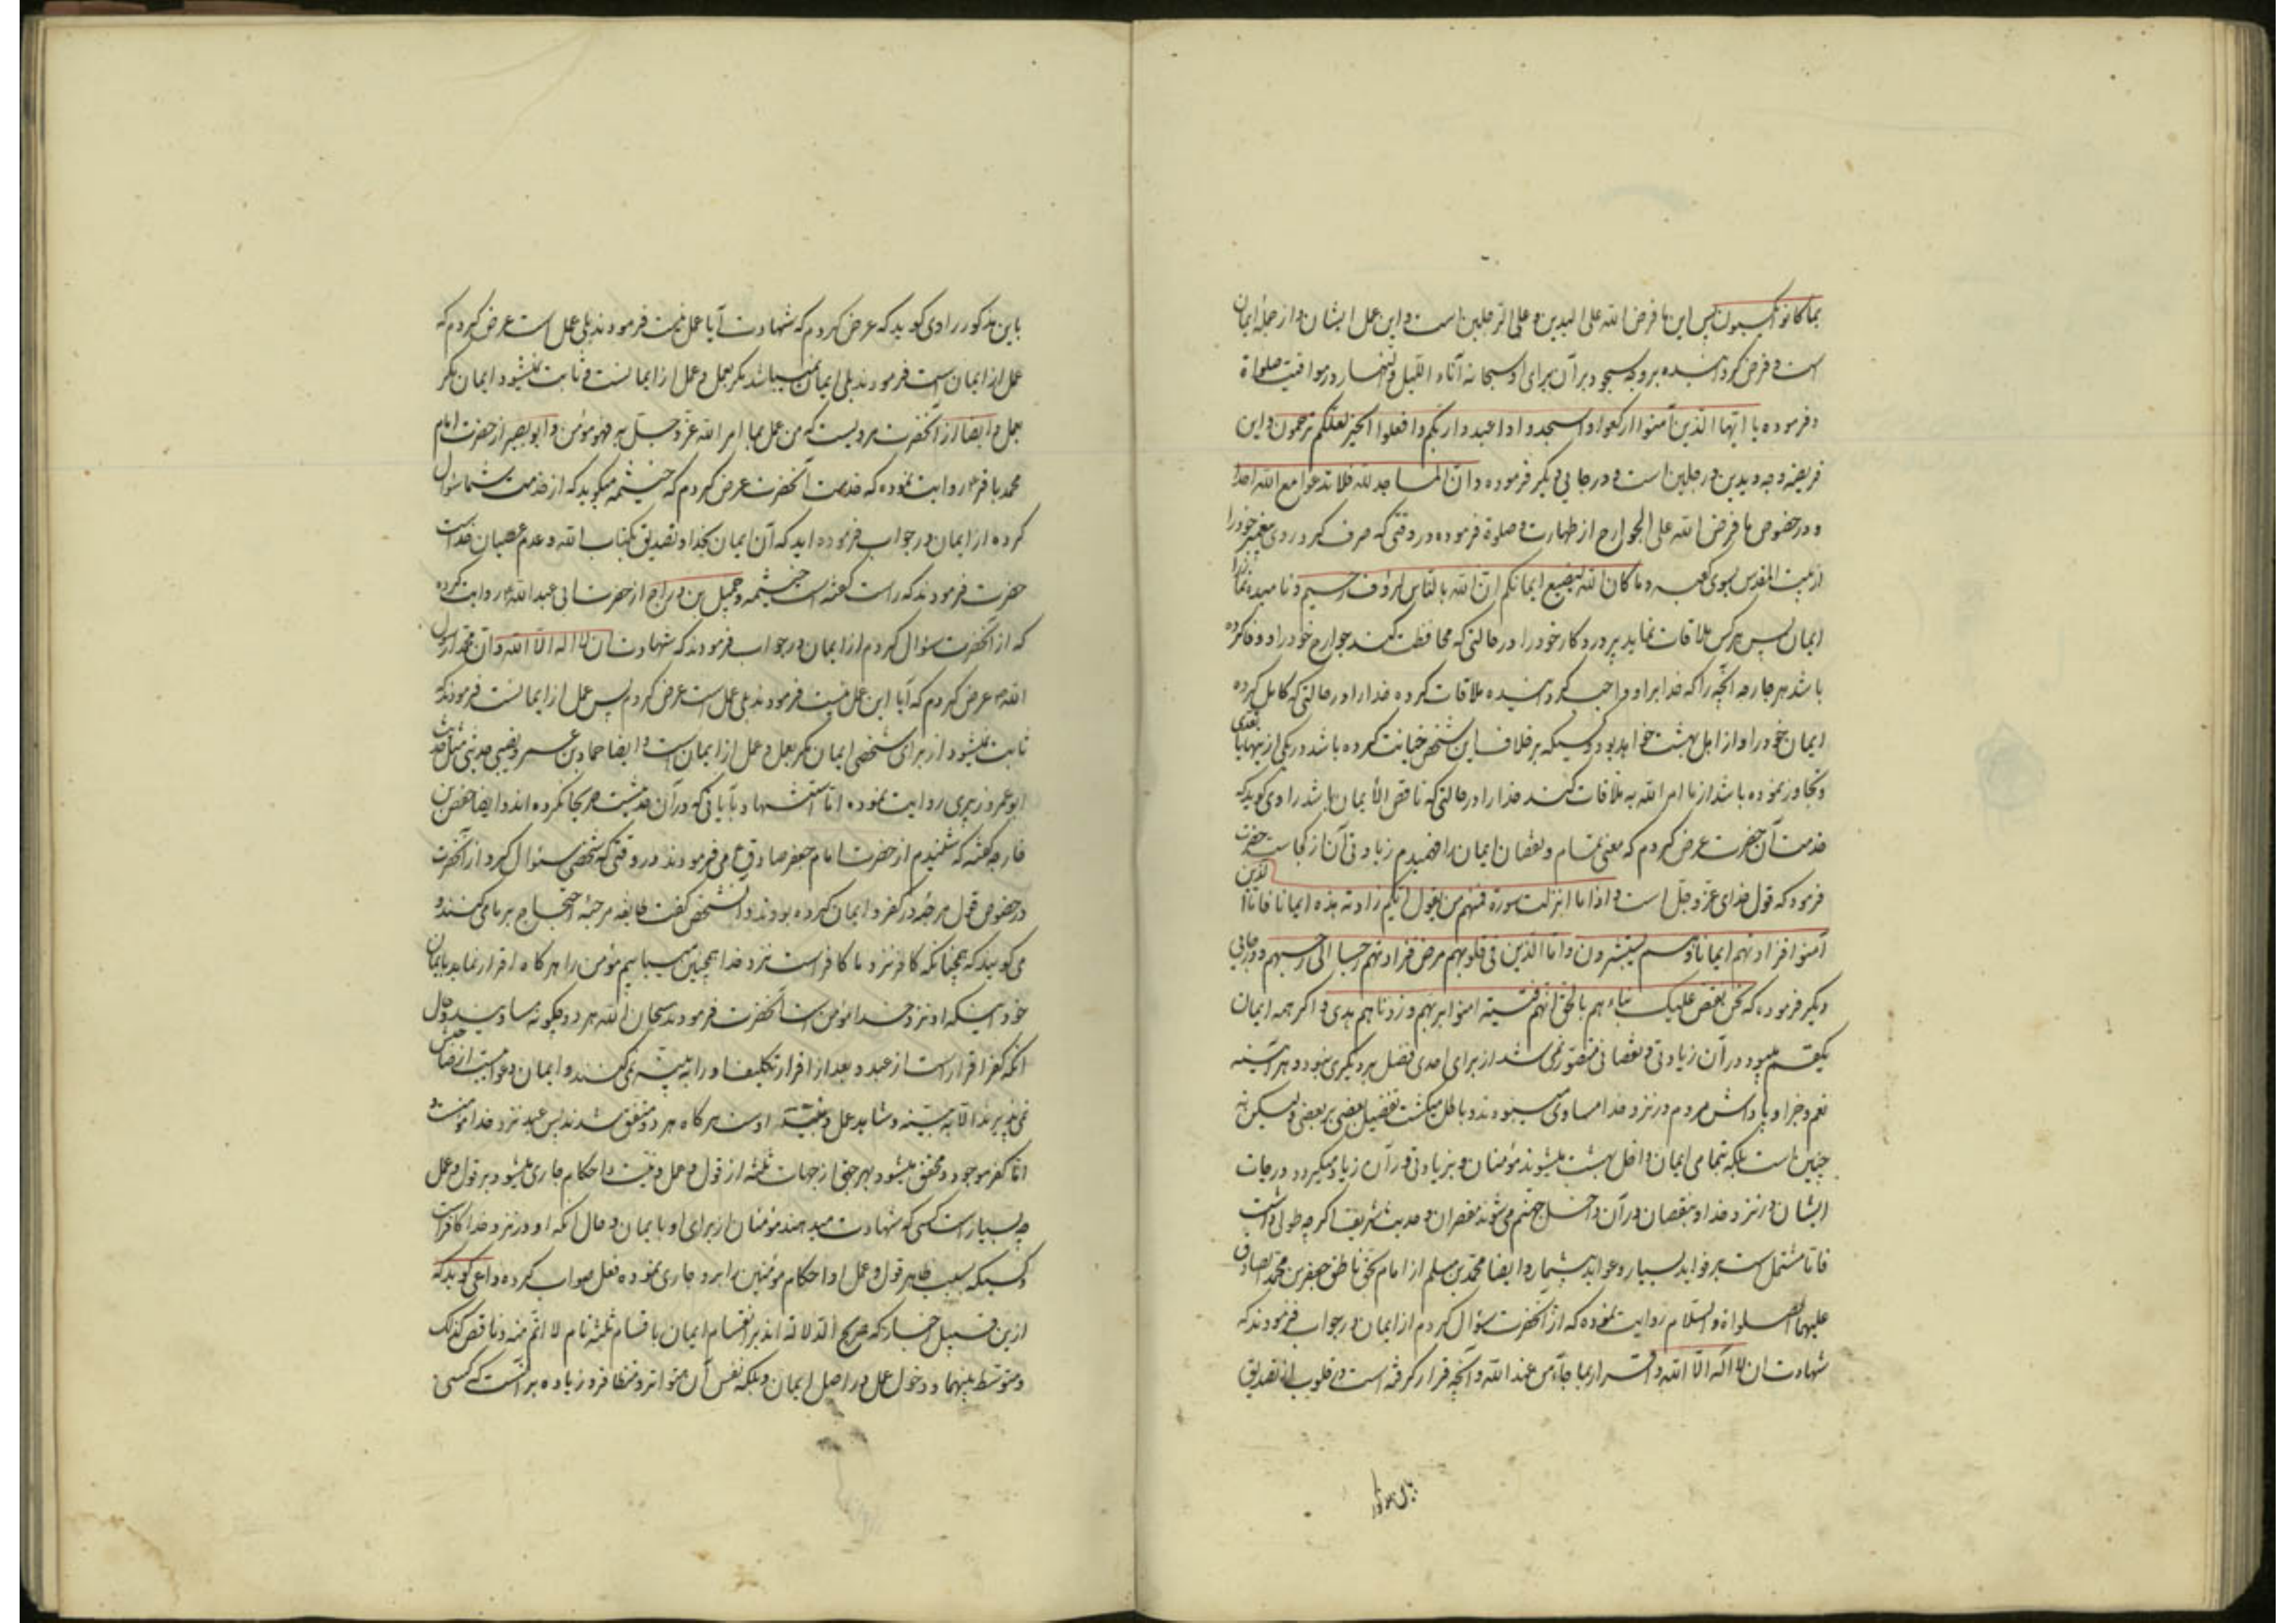 بما کانوا یکسبون پس این ما فرض الله علی الیدین و علی الرجلین است و این عمل ایشان و از جمله ایمان
است و فرض گردانیده بر وجه سجود بر آن برای او سبحانه آناء اللیل و النهار در مواقیت صلواة
و فرموده یا ایها الذین آمنوا ارکعوا و اسجدوا و اعبدوا ربکم و افعلوا الخیر لعلکم ترحمون و این
فریضه وجه و یدین و رجلین است و در جایی دیگر فرموده و ان المساجد لله فلا تدعوا مع الله احدا
و در خصوص ما فرض الله علی الجوارح از طهارت و صلوة فرموده در وقتی که صرف کرد روی پیغمبر خود را
از بیت المقدس بسوی کعبه و ما کان الله لیضیع ایمانکم ان الله بالناس لرؤف رحیم و نامیده نماز را
ایمان پس هر کس ملاقات نماید پروردکار خود را در حالتی که محافظت کننده جوارح خود را و وفا کرده
باشد بهر جارحه آنچه را که خدا بر او واجب گردانیده ملاقات کرده خدا را در حالتی که کامل کرده
ایمان خود را و از اهل بهشت خواهد بود و کسیکه بر خلاف این شخص خیانت کرده باشد در یکی از اینها یا تعدی
و تجاوز نموده باشد از ما امر الله به ملاقات کند خدا را در حالتی که ناقص الایمان باشد راوی گوید که
خدمت آن حضرت عرض کردم که معنی تمام و نقصان ایمان را فهمیدم زیادتی آن از کجاست حضرت
فرمود که قول خدای عز و جل است و اذا ما انزلت سورة فمنهم من یقول ایکم زادته هذه ایمانا فاما الذین
آمنوا فزادتهم ایمانا و هم یستبشرون و اما الذین فی قلوبهم مرض فزادتهم رجسا الی رجسهم و در جایی
دیگر فرموده که نحن نقص علیک نباءهم بالحق انهم فتیة امنوا بربهم و زدناهم هدی و اگر همه ایمان
یکقسم میبود و در آن زیادتی و نقصانی متصور نمی شد از برای احدی فضل بر دیگری نبود و هر آینه
نعم و جزا و پاداش مردم در نزد خدا مساوی میبودند و باطل میگشت تفضیل بعضی بر بعضی و لیکن نه
چنین است بلکه بتمامی ایمان داخل بهشت میشوند مؤمنان و بزیادتی در آن زیاد میگردد درجات
ایشان در نزد خدا و بنقصان در آن داخل جهنم می شوند مقصران و حدیث شریف اگر چه طولی داشت
فاما مشتمل است بر فواید بسیار و عواید بیشمار و ایضا محمد بن مسلم از امام بحق ناطق جعفر بن محمد الصادق
علیهما الصلواة و السلام روایت نموده که از آنحضرت سؤال کردم از ایمان در جواب فرمودند که
شهادت ان لا اله الا الله و اقرار بما جاء من عند الله و آنچه قرار گرفته است در قلوب از تصدیق
باین مذکور راوی گوید که عرض کردم که شهادت آیا عمل نیست فرمودند بلی عمل است عرض کردم که
عمل از ایمان است فرمودند بلی ایمان نمیباشد مگر بعمل و عمل از ایمانست و ثابت نمیشود ایمان مگر
بعمل و ایضا از آنحضرت مرویست که من عمل بما امر الله عز و جل به فهو مؤمن و ابو بصیر از حضرت امام
محمد باقر ع روایت نموده که خدمت آنحضرت عرض کردم که خیثمه میگوید که از خدمت شما سئوال
کرده از ایمان در جواب فرموده اید که آن ایمان بخدا و تصدیق بکتاب الله و عدم عصیان خداست
حضرت فرمودند که راست گفته است خیثمه و جمیل بن دراج از حضرت ابی عبد الله ع روایت کرده
که از آنحضرت سئوال کردم از ایمان در جواب فرمودند که شهادت ان لا اله الا الله و ان محمدا رسول
الله عرض کردم که آیا این عمل نیست فرمودند بلی عمل است عرض کردم پس عمل از ایمانست فرمودند که
ثابت نمیشود از برای شخصی ایمان مگر بعمل و عمل از ایمان است و ایضا حماد بن عمرو نصیبی حدیثی مثل حدیث
ابو عمرو زبیری روایت نموده اما استشهاد بآیاتی که در آن حدیث مذکور نکرده اند و ایضا حفص بن
خارجه گفته که شنیدم از حضرت امام جعفر صادق ع می فرمودند در وقتی که شخصی سئوال کرد از آنحضرت
در خصوص قول مرجئه در کفر و ایمان کرده بودند و آن شخص گفت طایفه مرجئه احتجاج بر ما می کنند و
می گویند که همچنانکه کافر نزد ما کافر است نزد خدا همچنین میباشیم مؤمن را هرگاه اقرار نماید بایمان
خود اینکه او نزد خدا مؤمن است آنحضرت فرمودند سبحان الله هر دو چگونه مساویند و حال
آنکه کفر اقرار است از عبد و بعد از اقرار تکلیف او را به بینه نمی کنند و ایمان دعوا است از صاحبش
نمی پذیرند الا به بینه و شاهد عمل و نیت اوست هرگاه هر دو متفق شدند پس عبد نزد خدا مومنست و
اما کفر موجود و محقق میشود بهر جهتی از جهات ثلثه از قول و عمل و نیت و احکام جاری میشود بر قول و عمل
چه بسیار است کسی که شهادت میدهند مؤمنان از برای او بایمان و حال آنکه او در نزد خدا کافر است
و کسیکه بسبب ظاهر قول و عمل او احکام مومنین را بر او جاری نموده فعل صواب کرده داعی گوید که
ازین قبیل اخبار که صریح الدلالة اند بر انقسام ایمان باقسام ثلثه تام لا اتم منه و ناقص کذلک
و متوسط بینهما و دخول عمل در اصل ایمان و بلکه نفس آن متواتر و متظافر و زیاده بر آنست که کسی